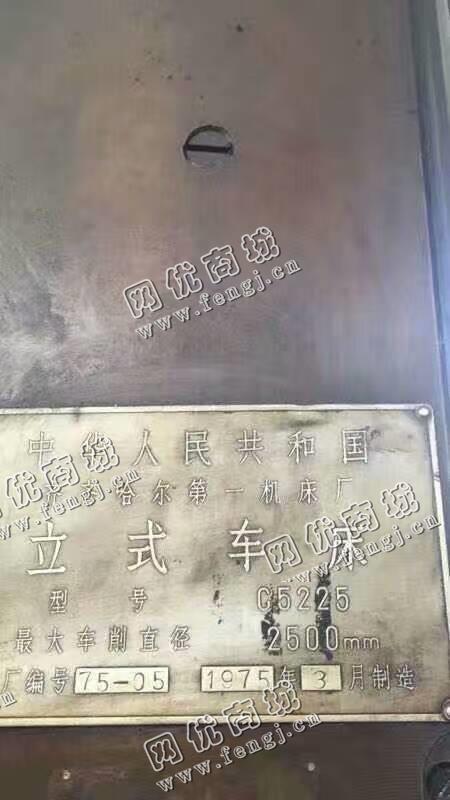 网优商城
www.fengj.cn
中华人民共和国
齐齐哈尔第一机床厂
立式车床
型号 C5225
最大车削直径 2500mm
厂编号 75-05 1975年 3 月制造
网优商城
www.fengj.cn
网优商城
www.fengj.cn
网优商城
www.fengj.cn